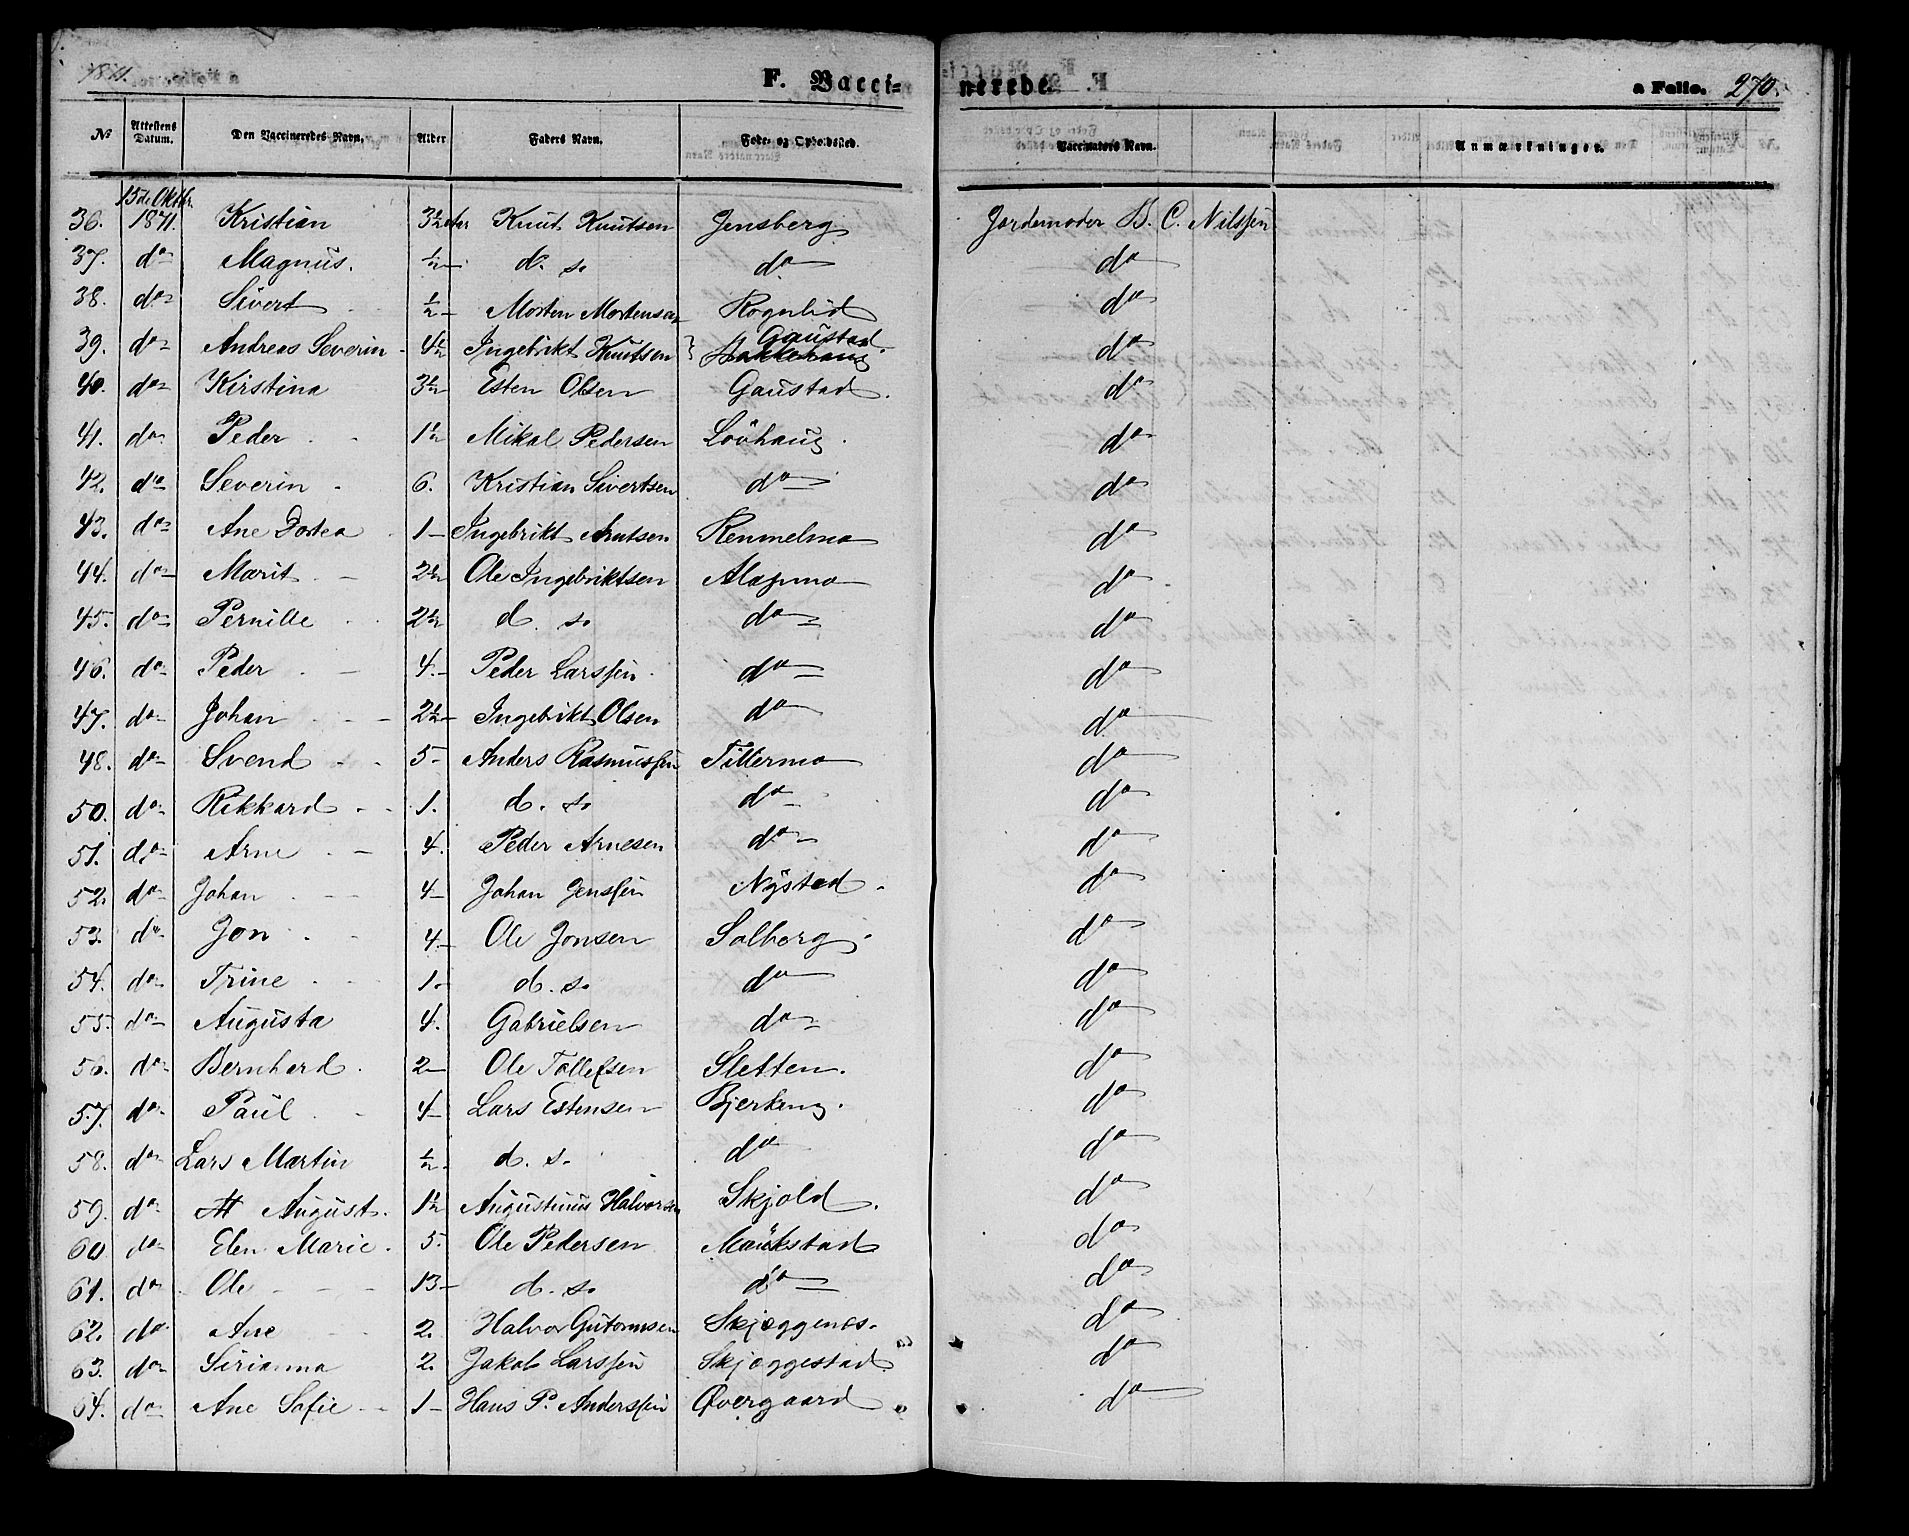 1871.
F. Vacci-
nerede.
a Folio. 270.
№ Attestens Datum. Den Vaccineredes Navn. Alder Faders Navn. Føde- og Opholdssted. Vaccinators Navn. Anmærkninger.
15de Oktbr.
36. 1871. Kristian 3½ Knut Knutsen Jensberg Jordemoder B. C. Nilssen
37. do Magnus. ½ d. s. do do
38. do Sivert ½ Morten Mortensen Rognlid do
39. do Andreas Severin 4½ Ingebrikt Knutsen Gaustad do
40. do Kirstina 3½ Esten Olsen Gaustad. do
41. do Peder 1½ Mikal Pedersen Lövhaug. do
42. do Severin 6. Kristian Sivertsen do do
43. do Ane Dortea 1 Ingebrikt Arntsen Remmelmo do
44. do Marit 2½ Ole Ingebriktsen Alapmo do
45. do Pernille 2½ d. s. do do
46. do Peder 4. Peder Larssen do do
47. do Johan 2½ Ingebrikt Olsen do do
48. do Svend 5 Anders Rasmussen Tillermo do
50. do Rikkard 1. d. s. do do
51. do Arne 4. Peder Arnesen do do
52. do Johan 4 Johan Jenssen Nystad do
53. do Jon 4 Ole Jonsen Solberg do
54. do Trine 1. d. s. do do
55. do Augusta 4. Gabrielsen do do
56. do Bernhard 2 Ole Tollefsen Sletten. do
57. do Paul 4 Lars Estensen do
58. do Lars Martin ½ d. s. do do
59. do August. 1½ Augustinus Halvorsen Skjold. do
60 do Elen Marie. 5. Ole Pedersen Maukstad do
61. do Ole 13 d. s. do do
62. do Ane 2. Halvor Gutormsen Skjæggenes. do
63. do Sirianna 2. Jakob Larssen Skjæggestad do
64. do Ane Sofie 1 Hans P. Anderssen Øvergaard do